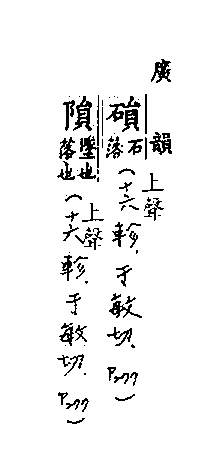 廣韻
磒
石落
上聲
(十六軫,于敏切,P277)
隕
墜也落也
上聲
(十六軫,于敏切,P277)